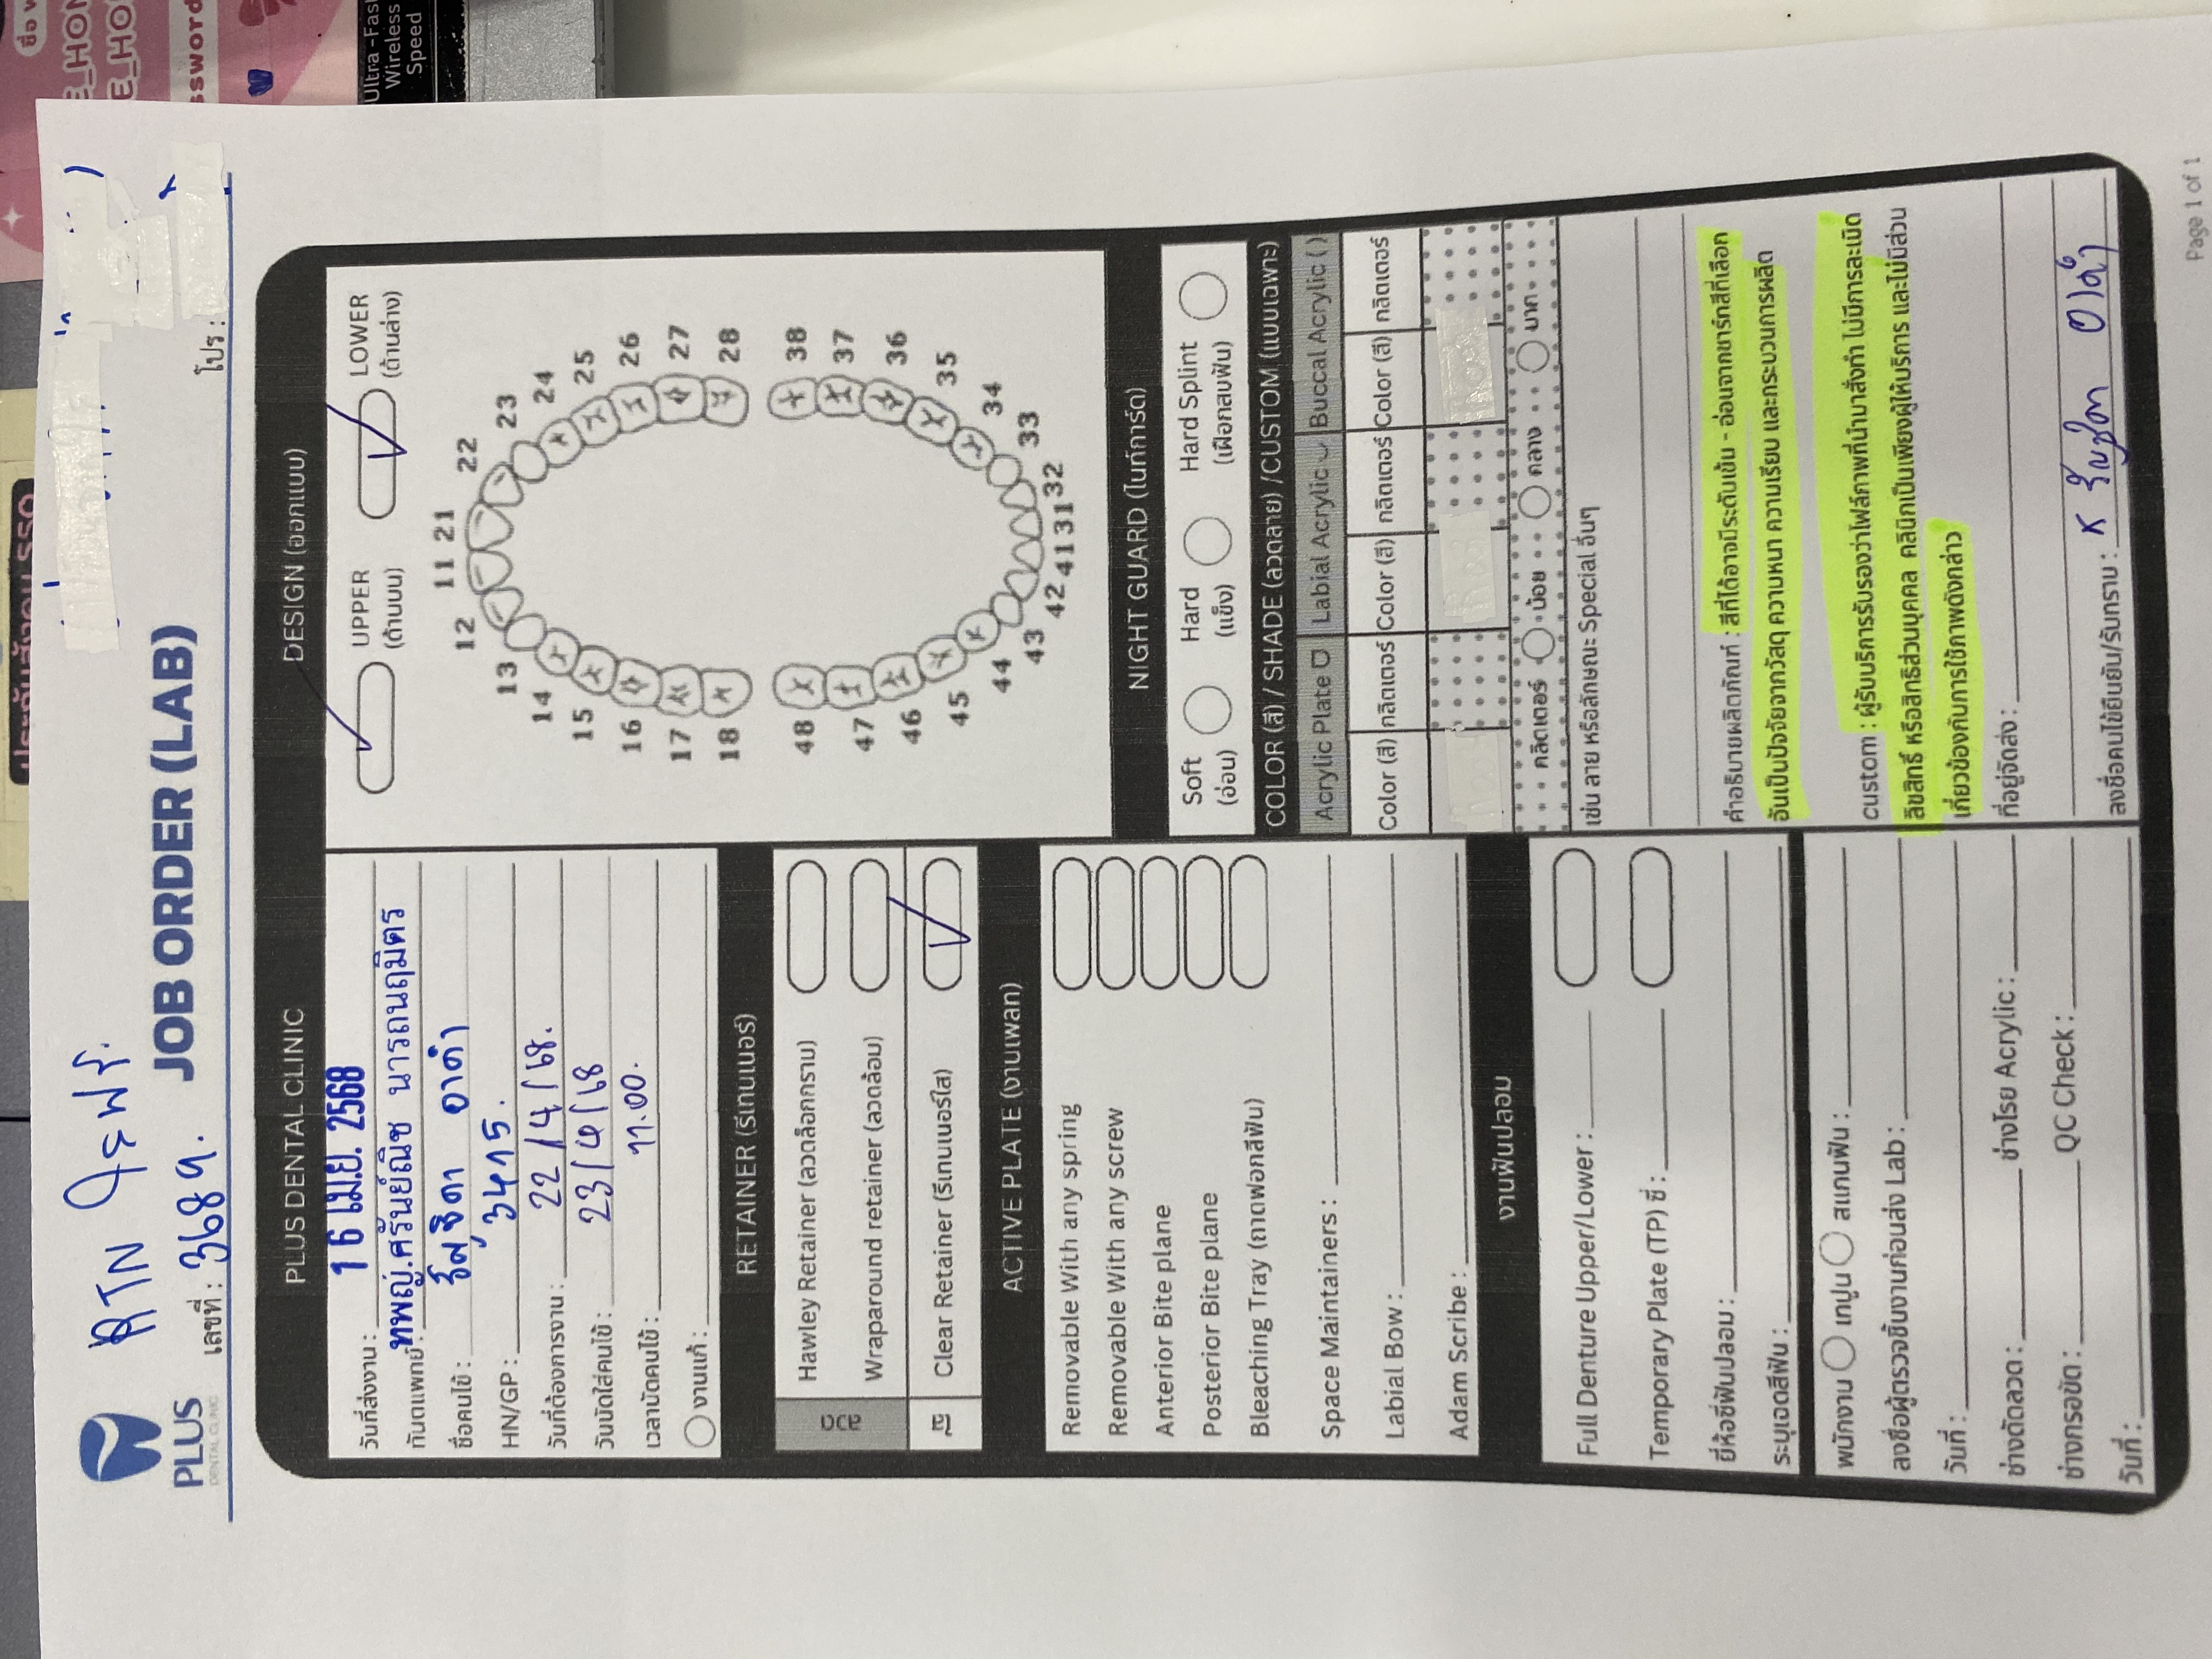 ประกันสังคม SSO
RTN ใสฟรี
PLUS
DENTAL CLINIC
JOB ORDER (LAB)
เลขที่ : 3689.
โปร :
PLUS DENTAL CLINIC
วันที่ส่งงาน : 16 เม.ย. 2568
ทันตแพทย์ : ทพญ.ศรันย์ณิช นารถนฤมิตร
ชื่อคนไข้ : ธัญชิดา อาดำ
HN/GP : 3415.
วันที่ต้องการงาน : 22/4/68.
วันนัดใส่คนไข้ : 23/4/68
เวลานัดคนไข้ : 11.00.
งานแก้ :
RETAINER (รีเทนเนอร์)
ลวด
Hawley Retainer (ลวดล็อกกราม)
Wraparound retainer (ลวดล้อม)
ใส
Clear Retainer (รีเทนเนอร์ใส)
ACTIVE PLATE (งานเพลท)
Removable With any spring
Removable With any screw
Anterior Bite plane
Posterior Bite plane
Bleaching Tray (ถาดฟอกสีฟัน)
Space Maintainers :
Labial Bow :
Adam Scribe :
งานฟันปลอม
Full Denture Upper/Lower :
Temporary Plate (TP) ซี่ :
ยี่ห้อซี่ฟันปลอม :
ระบุเฉดสีฟัน :
พนักงาน เทปูน สแกนฟัน :
ลงชื่อผู้ตรวจชิ้นงานก่อนส่ง Lab :
วันที่ :
ช่างดัดลวด : ช่างโรย Acrylic :
ช่างกรอขัด : QC Check :
วันที่ :
DESIGN (ออกแบบ)
UPPER
(ด้านบน)
LOWER
(ด้านล่าง)
11 21
12 22
13 23
14 24
15 25
16 26
17 27
18 28
48 38
47 37
46 36
45 35
44 34
43 33
42 41 31 32
NIGHT GUARD (ไนท์การ์ด)
Soft
(อ่อน)
Hard
(แข็ง)
Hard Splint
(เฝือกสบฟัน)
COLOR (สี) / SHADE (ลวดลาย) /CUSTOM (แบบเฉพาะ)
Acrylic Plate Labial Acrylic Buccal Acrylic ( )
Color (สี) กลิตเตอร์ Color (สี) กลิตเตอร์ Color (สี) กลิตเตอร์
กลิตเตอร์ น้อย กลาง มาก
เช่น ลาย หรือลักษณะ Special อื่นๆ
คำอธิบายผลิตภัณฑ์ : สีที่ได้อาจมีระดับเข้ม - อ่อนจากชาร์ทสีที่เลือก
อันเป็นปัจจัยจากวัสดุ ความหนา ความเรียบ และกระบวนการผลิต
custom : ผู้รับบริการรับรองว่าไฟล์ภาพที่นำมาสั่งทำ ไม่มีการละเมิด
ลิขสิทธิ์ หรือสิทธิส่วนบุคคล คลินิกเป็นเพียงผู้ให้บริการ และไม่มีส่วน
เกี่ยวข้องกับการใช้ภาพดังกล่าว
ที่อยู่จัดส่ง :
ลงชื่อคนไข้ยืนยัน/รับทราบ : x ธัญชิดา อาดำ
Page 1 of 1
Ultra-Fast
Wireless
Speed